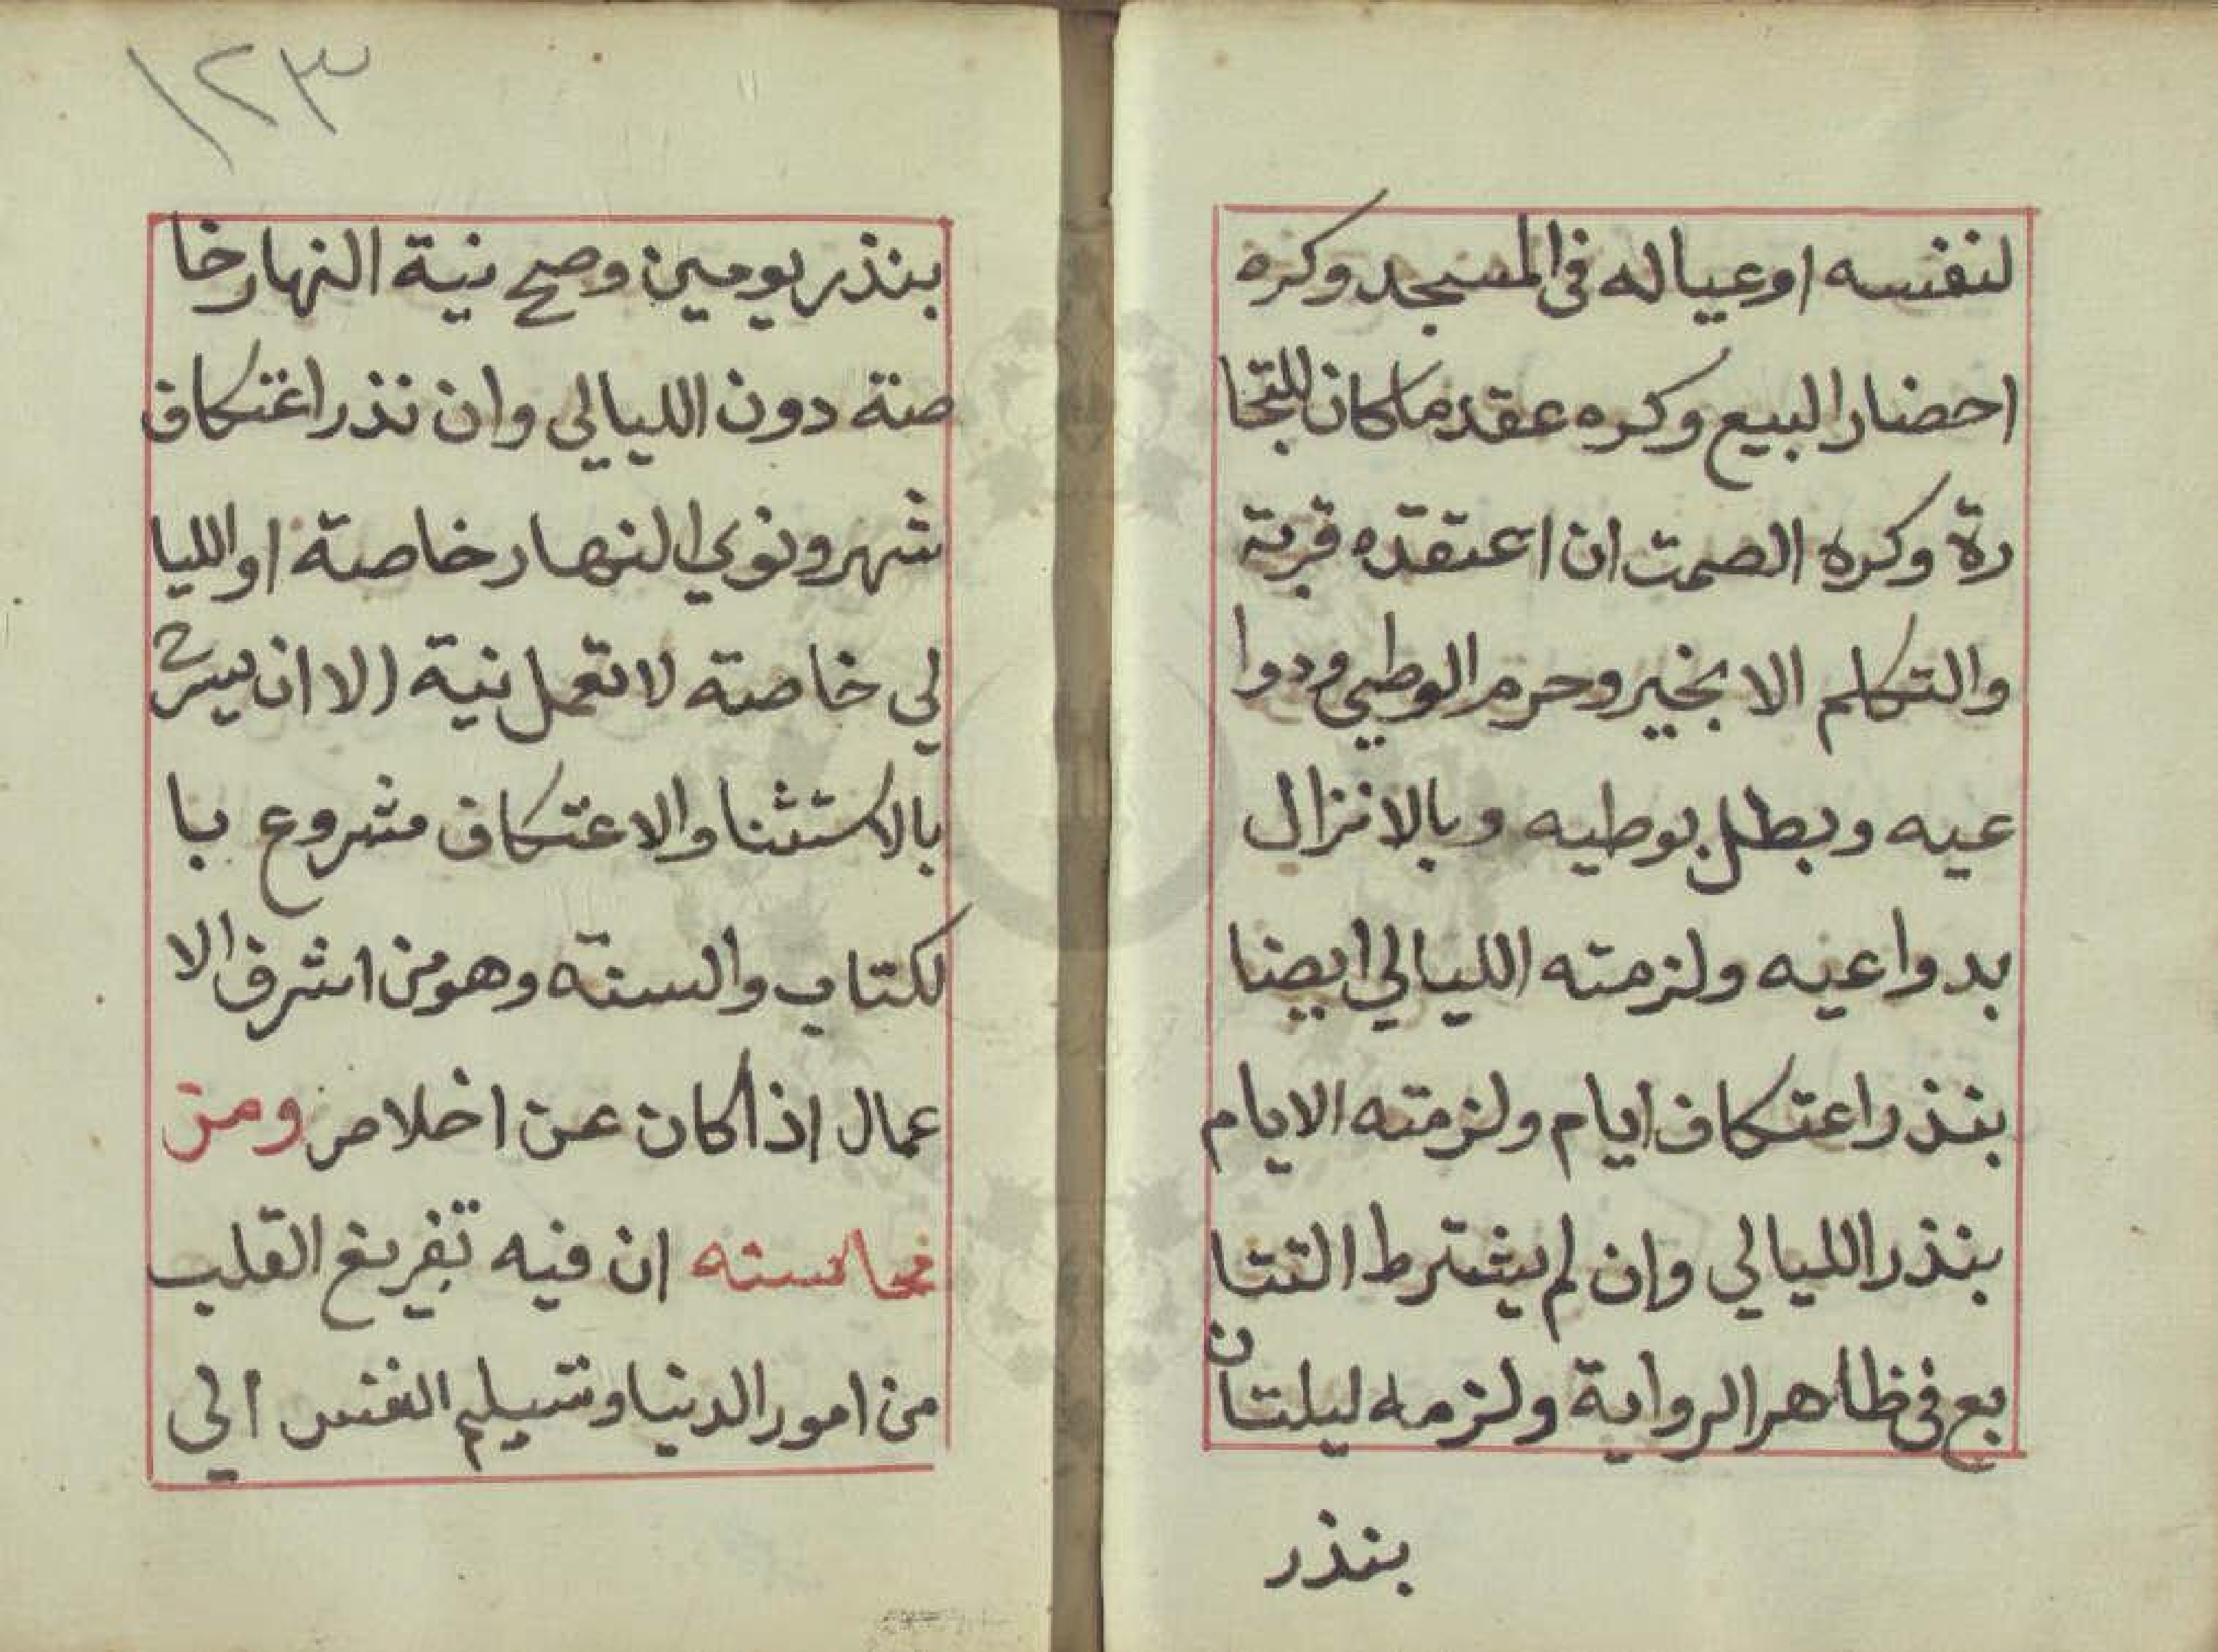 لنفسه اوعياله فى المسجد وكره
احضار البيع وكره عقد ماكان للتجا
رة وكره الصمت ان اعتقده قربة
والتكلم الا بخير وحرم الوطي ودوا
عيه وبطل بوطيه وبالانزال
بدواعيه ولزمته الليالي ايضا
بنذر اعتكاف ايام ولزمته الايام
بنذر الليالي وان لم يشترط التتا
بع فى ظاهر الرواية ولزمه ليلتان
بنذر
١٢٣
بنذر يومين وصح نية النهار خا
صة دون الليالي وان نذر اعتكاف
شهر ونوي النهار خاصة او الليا
لي خاصة لا تعمل نية الا ان يصرح
بالاستثنا والاعتكاف مشروع با
لكتاب والسنة وهو من اشرف الا
عمال اذا كان عن اخلاص ومن
محاسنه ان فيه تفريغ القلب
من امور الدنيا وتسليم النفس الي